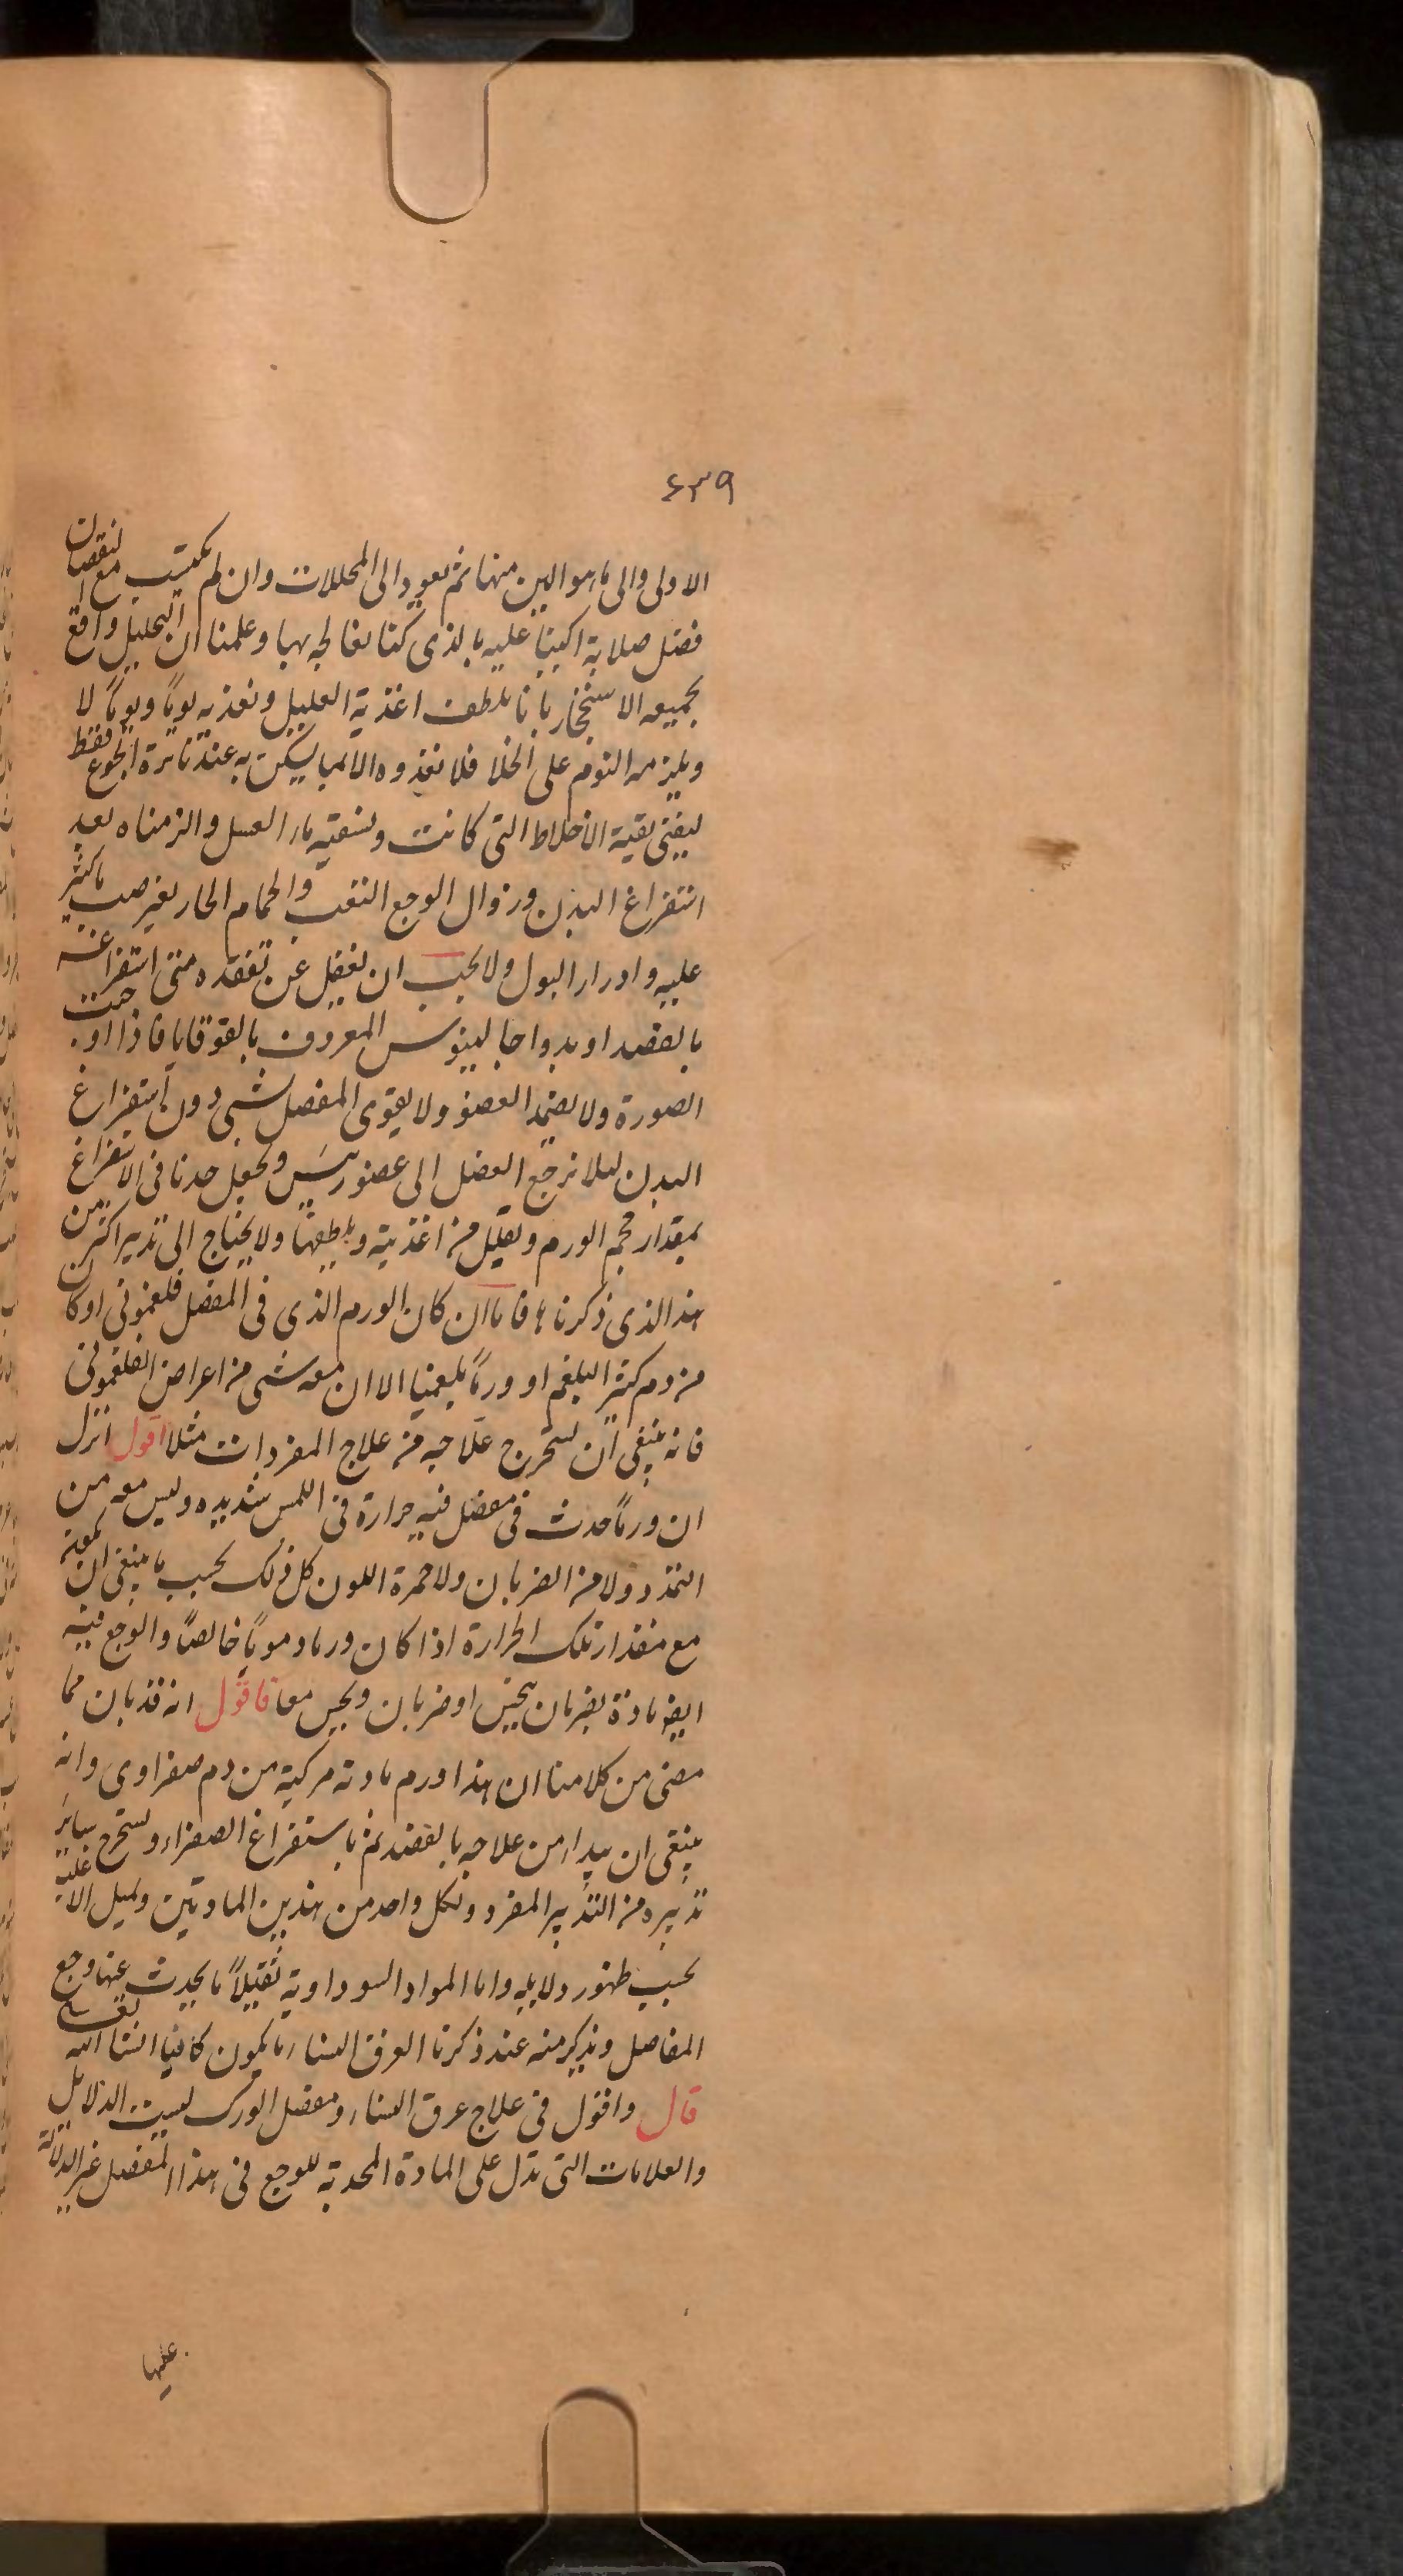 ٤٣٩
الاولى والى ما هو الين منها ثم يعود الى المحللات وان لم يكتسب مع النقصان
فضل صلابة اكببنا عليه بالذى كنا نعالجه بها وعلمنا ان التحليل واقع
بجميعه الا سنخار بانا نلطف اغذية العليل ونغذيه يوماً ويوماً لا
ويلزمه النوم على الخلا فلا نغذوه الا بما يسكن به عند نائرة الجوع فقط
ليفنى بقية الاخلاط التى كانت ونسقيه ماء العسل والزمناه بعد
استفراغ البدن وزوال الوجع التعب والحمام الحار بغير صب ماء كثير
عليه وادرار البول ولا يجب ان يغفل عن تفقده متى استفراغه
بالفصد او بدواء جالينوس المعروف بالقوقايا فاذا اوجبت
الصورة ولا يضمد العضو ولا يقوى المفصل بشى دون استفراغ
البدن ليلا ترجع الفضل الى عضو رئيس ونجعل حدنا فى الاستفراغ
بمقدار حجم الورم ونقلل من اغذيته ونلطفها ولا يحتاج الى تدبير اكثر من
هذا الذى ذكرناه فاما ان كان الورم الذى فى المفصل فلغمونى او كان
من دم كثير البلغم او ورماً بلغميا الا ان معه شى من اعراض الفلغمونى
فانه ينبغى ان نستخرج علاجه من علاج المفردات مثلا اقول انزل
ان ورماً حدث فى مفصل فيه حرارة فى اللمس شديده وليس معه من
التمدد ولا من الضربان ولا حمرة اللون كل ذلك بحسب ما ينبغى ان يكون
مع مقدار تلك الحرارة اذا كان ورما دموياً خالصاً والوجع فيه
ايضا مادة بضربان بنخس او ضربان ونخس معا فاقول انه قد بان مما
مضى من كلامنا ان هذا ورم مادته مركبة من دم صفراوى وانه
ينبغى ان يبداء من علاجه بالفصد ثم باستفراغ الصفراء ونستخرج سائر
تدبيره من التدبير المفرد ولكل واحد من هذين المادتين ونميل الاغلبية
بحسب ظهور دلايله واما المواد السوداوية فقليلاً ما يحدث عنها وجع
المفاصل ونذكر منه عند ذكرنا العرق النساء ما يكون كافيا انشا الله تعالى
قال واقول فى علاج عرق النساء ومفصل الورك ليست الدلايل
والعلامات التى تدل على المادة المحدثة للوجع فى هذا المفصل غير الدلالة
عليها